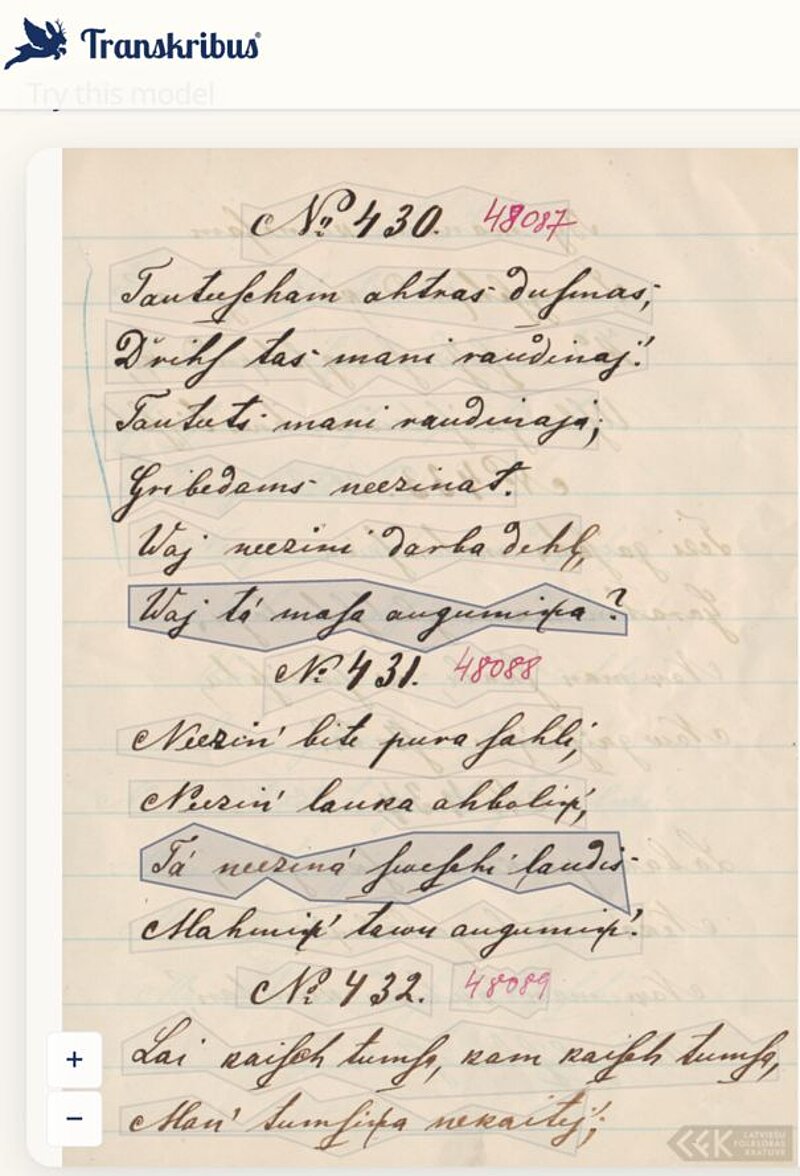 Transkribus
Try this model
№ 430. 48087
Tautuscham ahtras duſmas;
Drihſ tas mani raudinaj!
Taututs mani raudinaja;
Gribedams neezinat.
Waj neezini darba dehļ,
Waj tá maſa augumiņa?
№ 431. 48088
Neezin' bite pura ſahli,
Neezin' lauka ahboliņ',
Tá neeziná ſweſchi laudis
Mahmiņ' tawu augumiņ'.
№ 432. 48089
Lai kaiſch tumſa, kam kaiſch tumſa,
Man' tumſiņa nekaitej';
+
−
LATVIEŠU
FOLKLORAS
KRĀTUVE